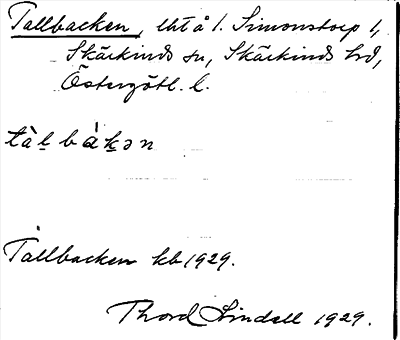 Tallbacken, lht å l. Simonstorp 1,
Skärkinds sn, Skärkinds hd,
Östergötl. l.
tàl bákən
Tallbacken kb 1929.
Thord Lindell 1929.